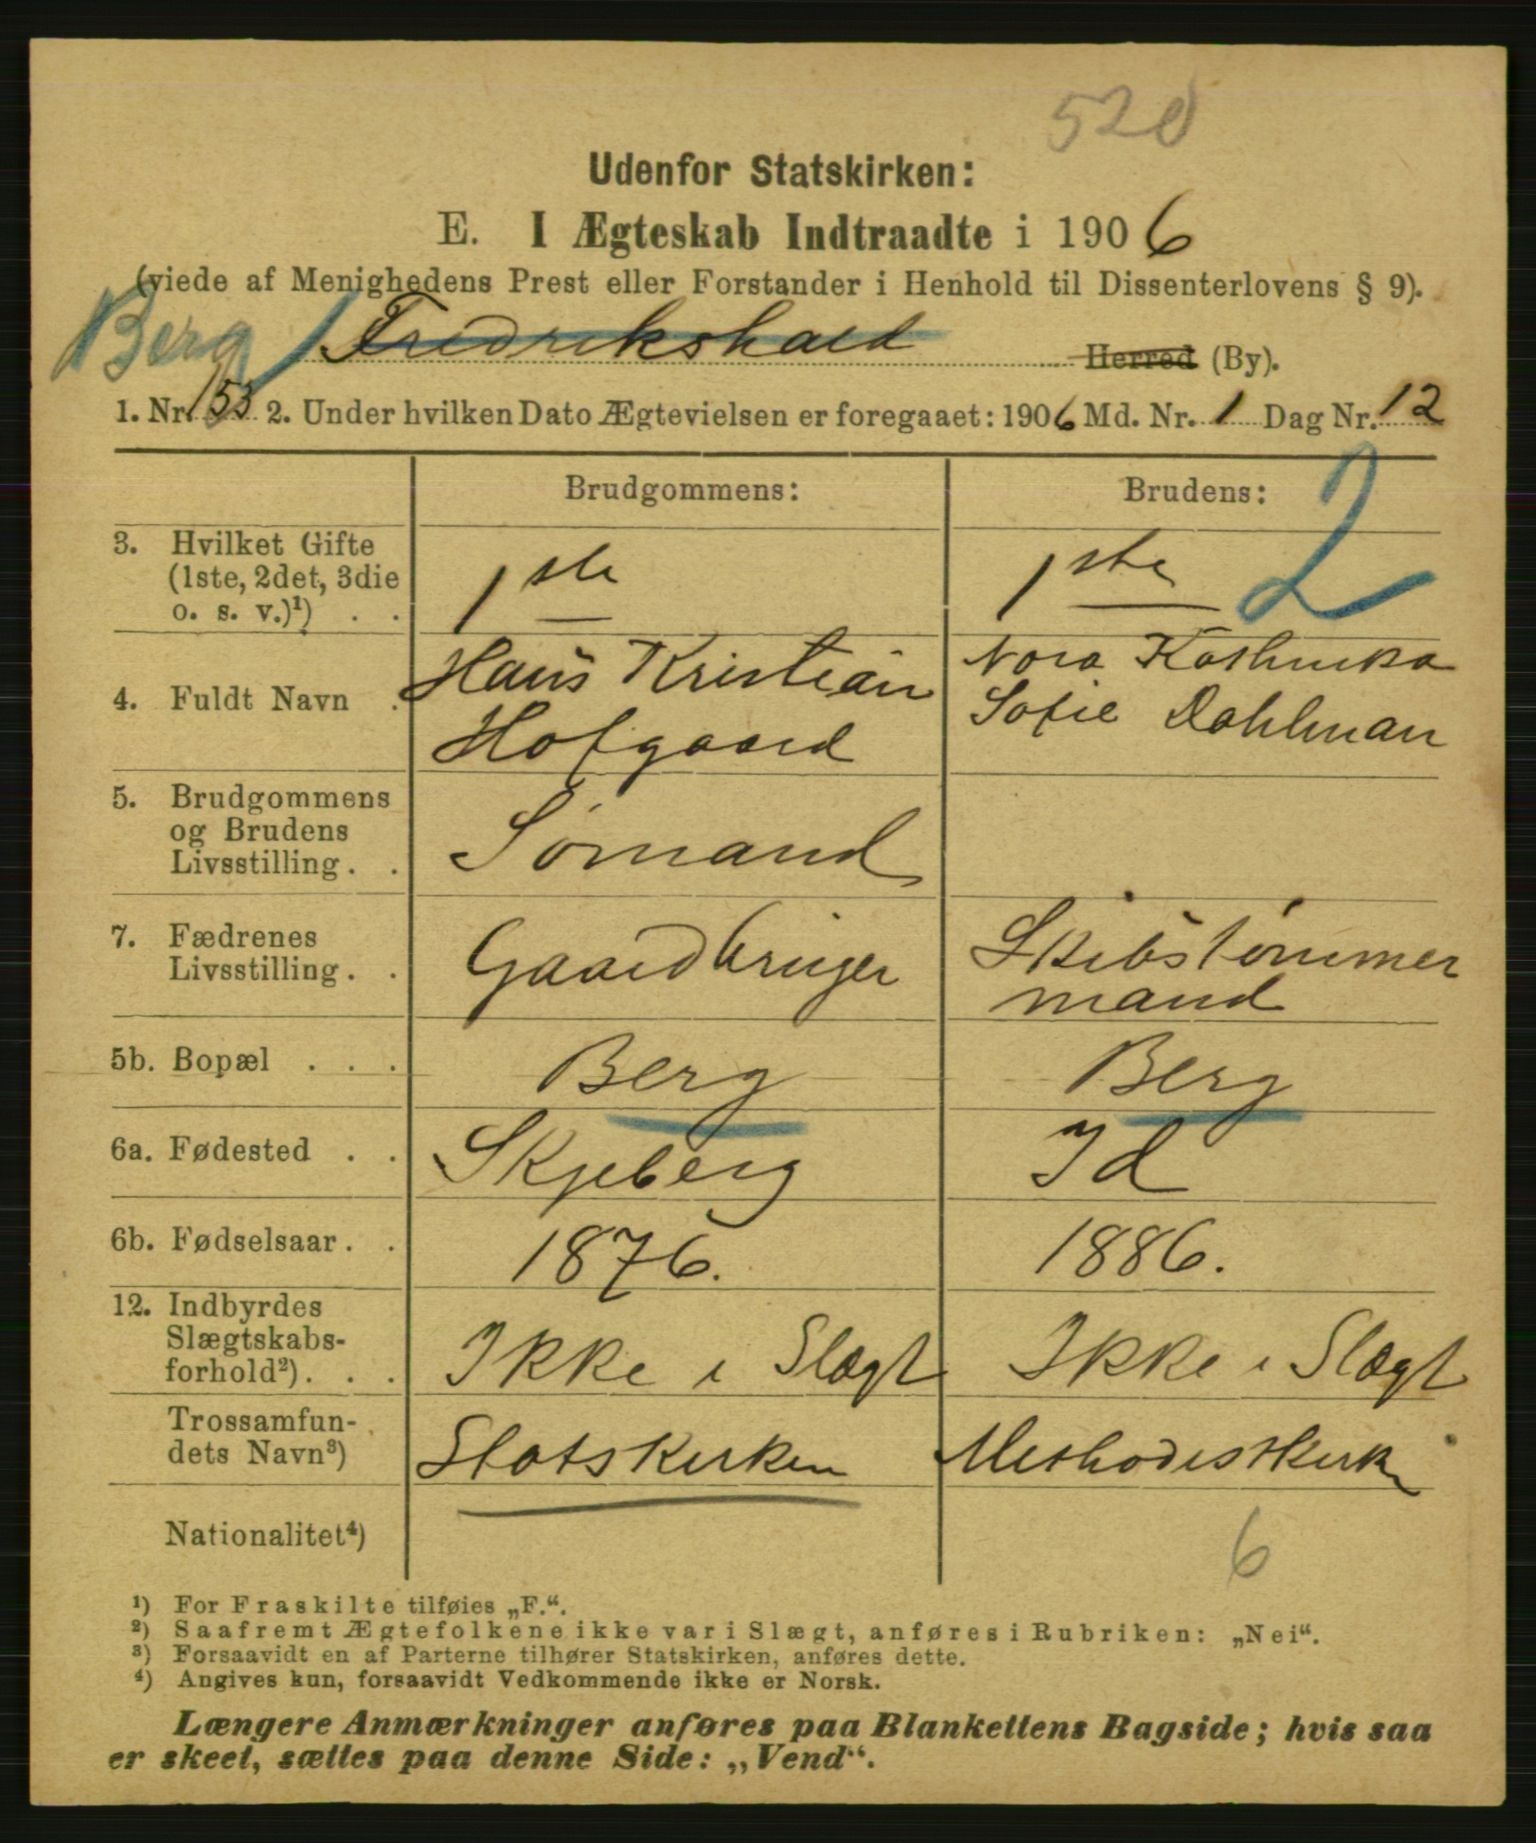 520
Udenfor Statskirken:
E. I Ægteskab Indtraadte i 1906
(viede af Menighedens Prest eller Forstander i Henhold til Dissenterlovens § 9).
Berg Fredrikshald Herred (By).
1. Nr. 153 2. Under hvilken Dato Ægtevielsen er foregaaet: 1906 Md. Nr. 1 Dag Nr. 12
Brudgommens: Brudens: 2
3. Hvilket Gifte
(1ste, 2det, 3die
o. s. v.)¹) . . 1ste 1ste
4. Fuldt Navn . Hans Kristian Nora
Hofgaard Sofie Dahlman
5. Brudgommens
og Brudens
Livsstilling . . Sømand
7. Fædrenes
Livsstilling . . Gaardbruger Skibstømmer
mand
5b. Bopæl . . . Berg Berg
6a. Fødested . . Skjeberg Id
6b. Fødselsaar . . 1876. 1886.
12. Indbyrdes
Slægtskabs-
forhold²) . . . Ikke i Slægt Ikke i Slægt
Trossamfun-
dets Navn³) Statskirken Methodistkirk
Nationalitet⁴)
6
¹) For Fraskilte tilføies „F.“.
²) Saafremt Ægtefolkene ikke var i Slægt, anføres i Rubriken: „Nei“.
³) Forsaavidt en af Parterne tilhører Statskirken, anføres dette.
⁴) Angives kun, forsaavidt Vedkommende ikke er Norsk.
Længere Anmærkninger anføres paa Blankettens Bagside; hvis saa
er skeet, sættes paa denne Side: „Vend“.